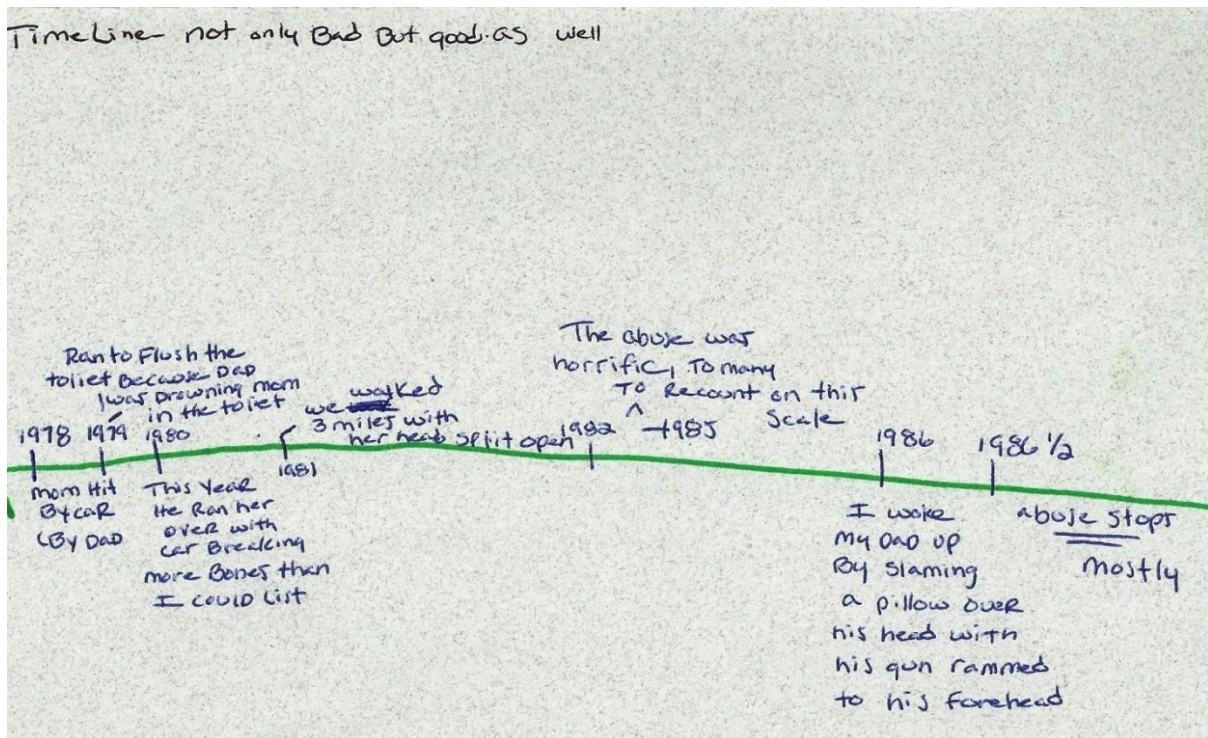 TimeLine- not only Bad But good as well
Ran to Flush the
toliet Because DAD
was Drowning mom
in the toliet
1978
1979
1980
we walked
3 miles with
her head split open
1981
The abuse was
horrific, To many
To Recount on this
Scale
1982
-1985
1986
1986 1/2
mom Hit
By caR
(By DAD
This Year
He Ran her
over with
car Breaking
more Bones than
I could List
I woke
my DAD up
By slaming
a pillow over
his head with
his gun rammed
to his forehead
abuse stops
mostly